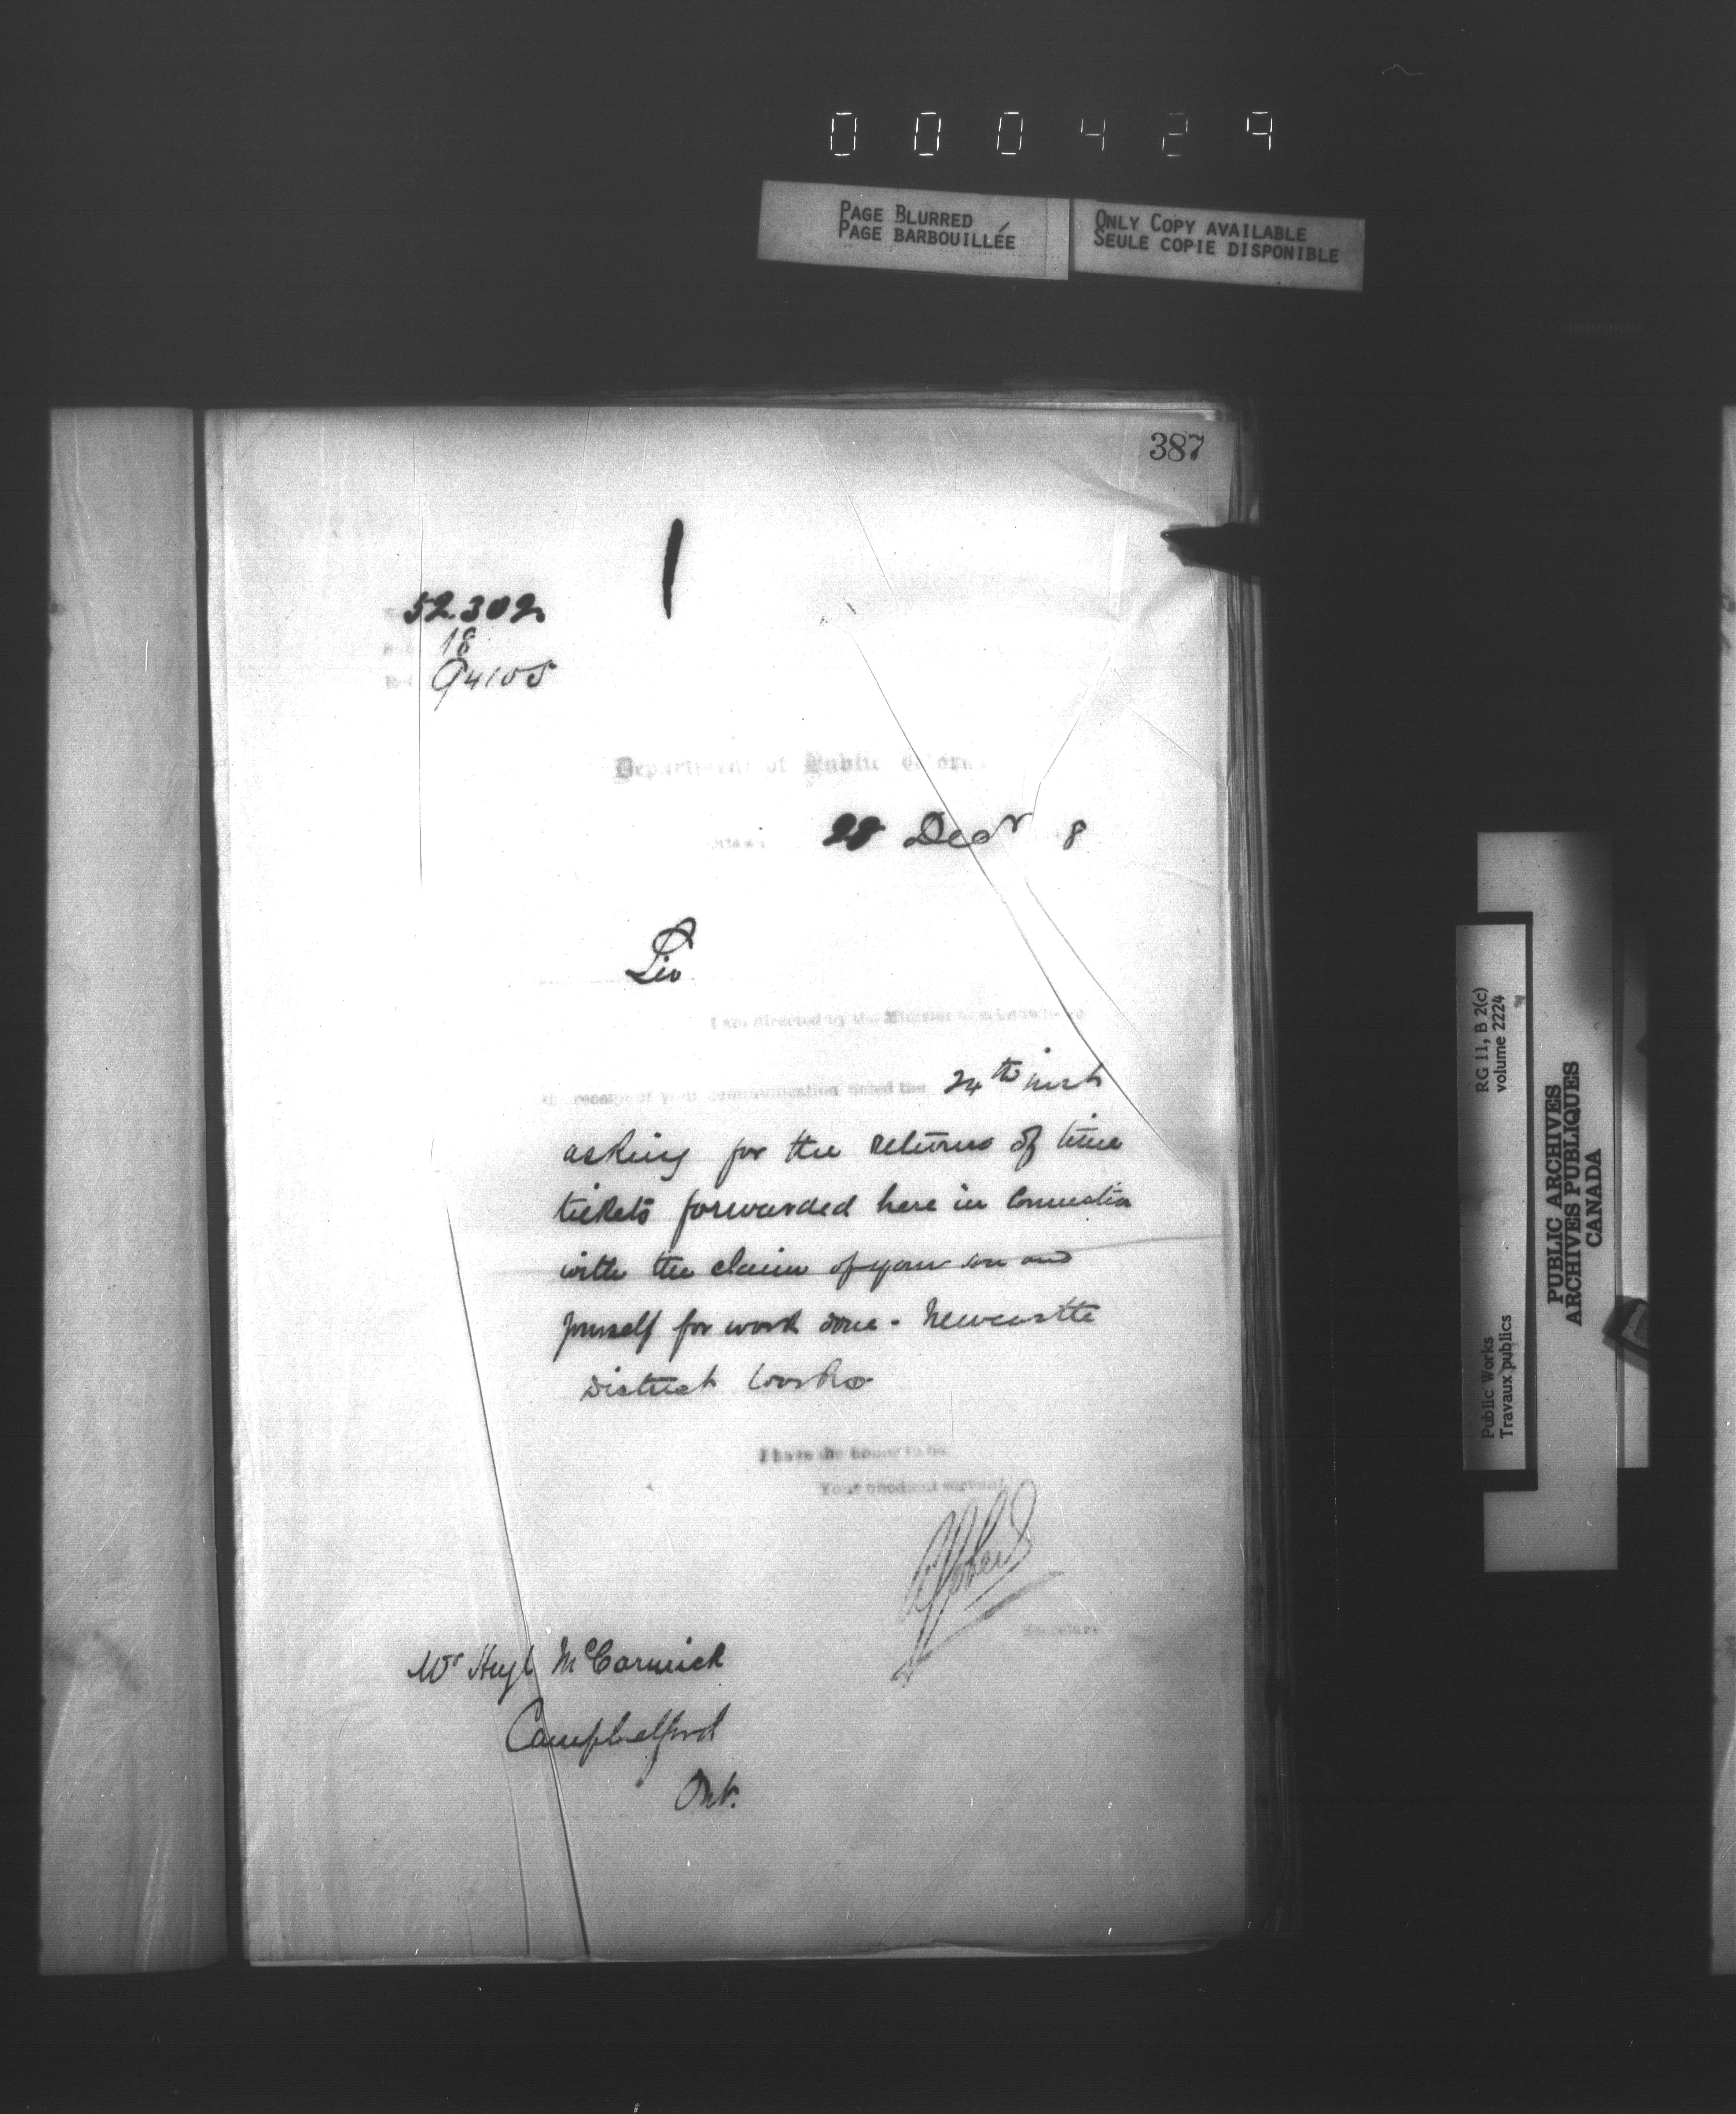 000429
PAGE BLURRED
PAGE BARBOUILLÉE
ONLY COPY AVAILABLE
SEULE COPIE DISPONIBLE
387
52302
18
94105
Department of Public Works
28 Decr 8
Sir
I am directed by the Minister to acknowledge
the receipt of your communication dated the 24th inst
asking for the returns of time
tickets forwarded here in connection
with the claim of your son and
yourself for work done - Newcastle
District Works
I have the honor to be
Your obedient servant
Secretary
Mr Hugh McCormick
Campbellford
Ont.
RG 11, B 2(c)
volume 2224
Public Works
Travaux publics
PUBLIC ARCHIVES
ARCHIVES PUBLIQUES
CANADA